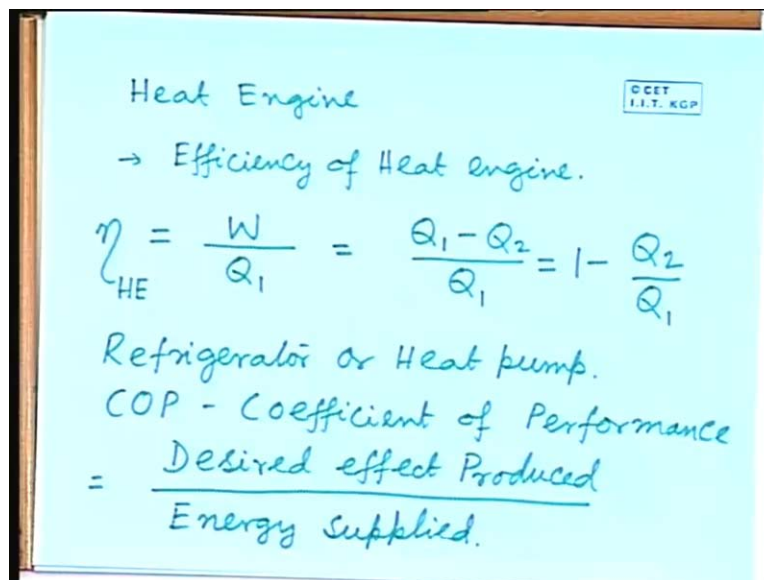 Heat Engine
© CET
I.I.T. KGP
→ Efficiency of Heat engine.
η_HE = W/Q₁ = (Q₁ - Q₂)/Q₁ = 1 - Q₂/Q₁
Refrigerator or Heat pump.
COP - Coefficient of Performance
= Desired effect Produced
Energy supplied.